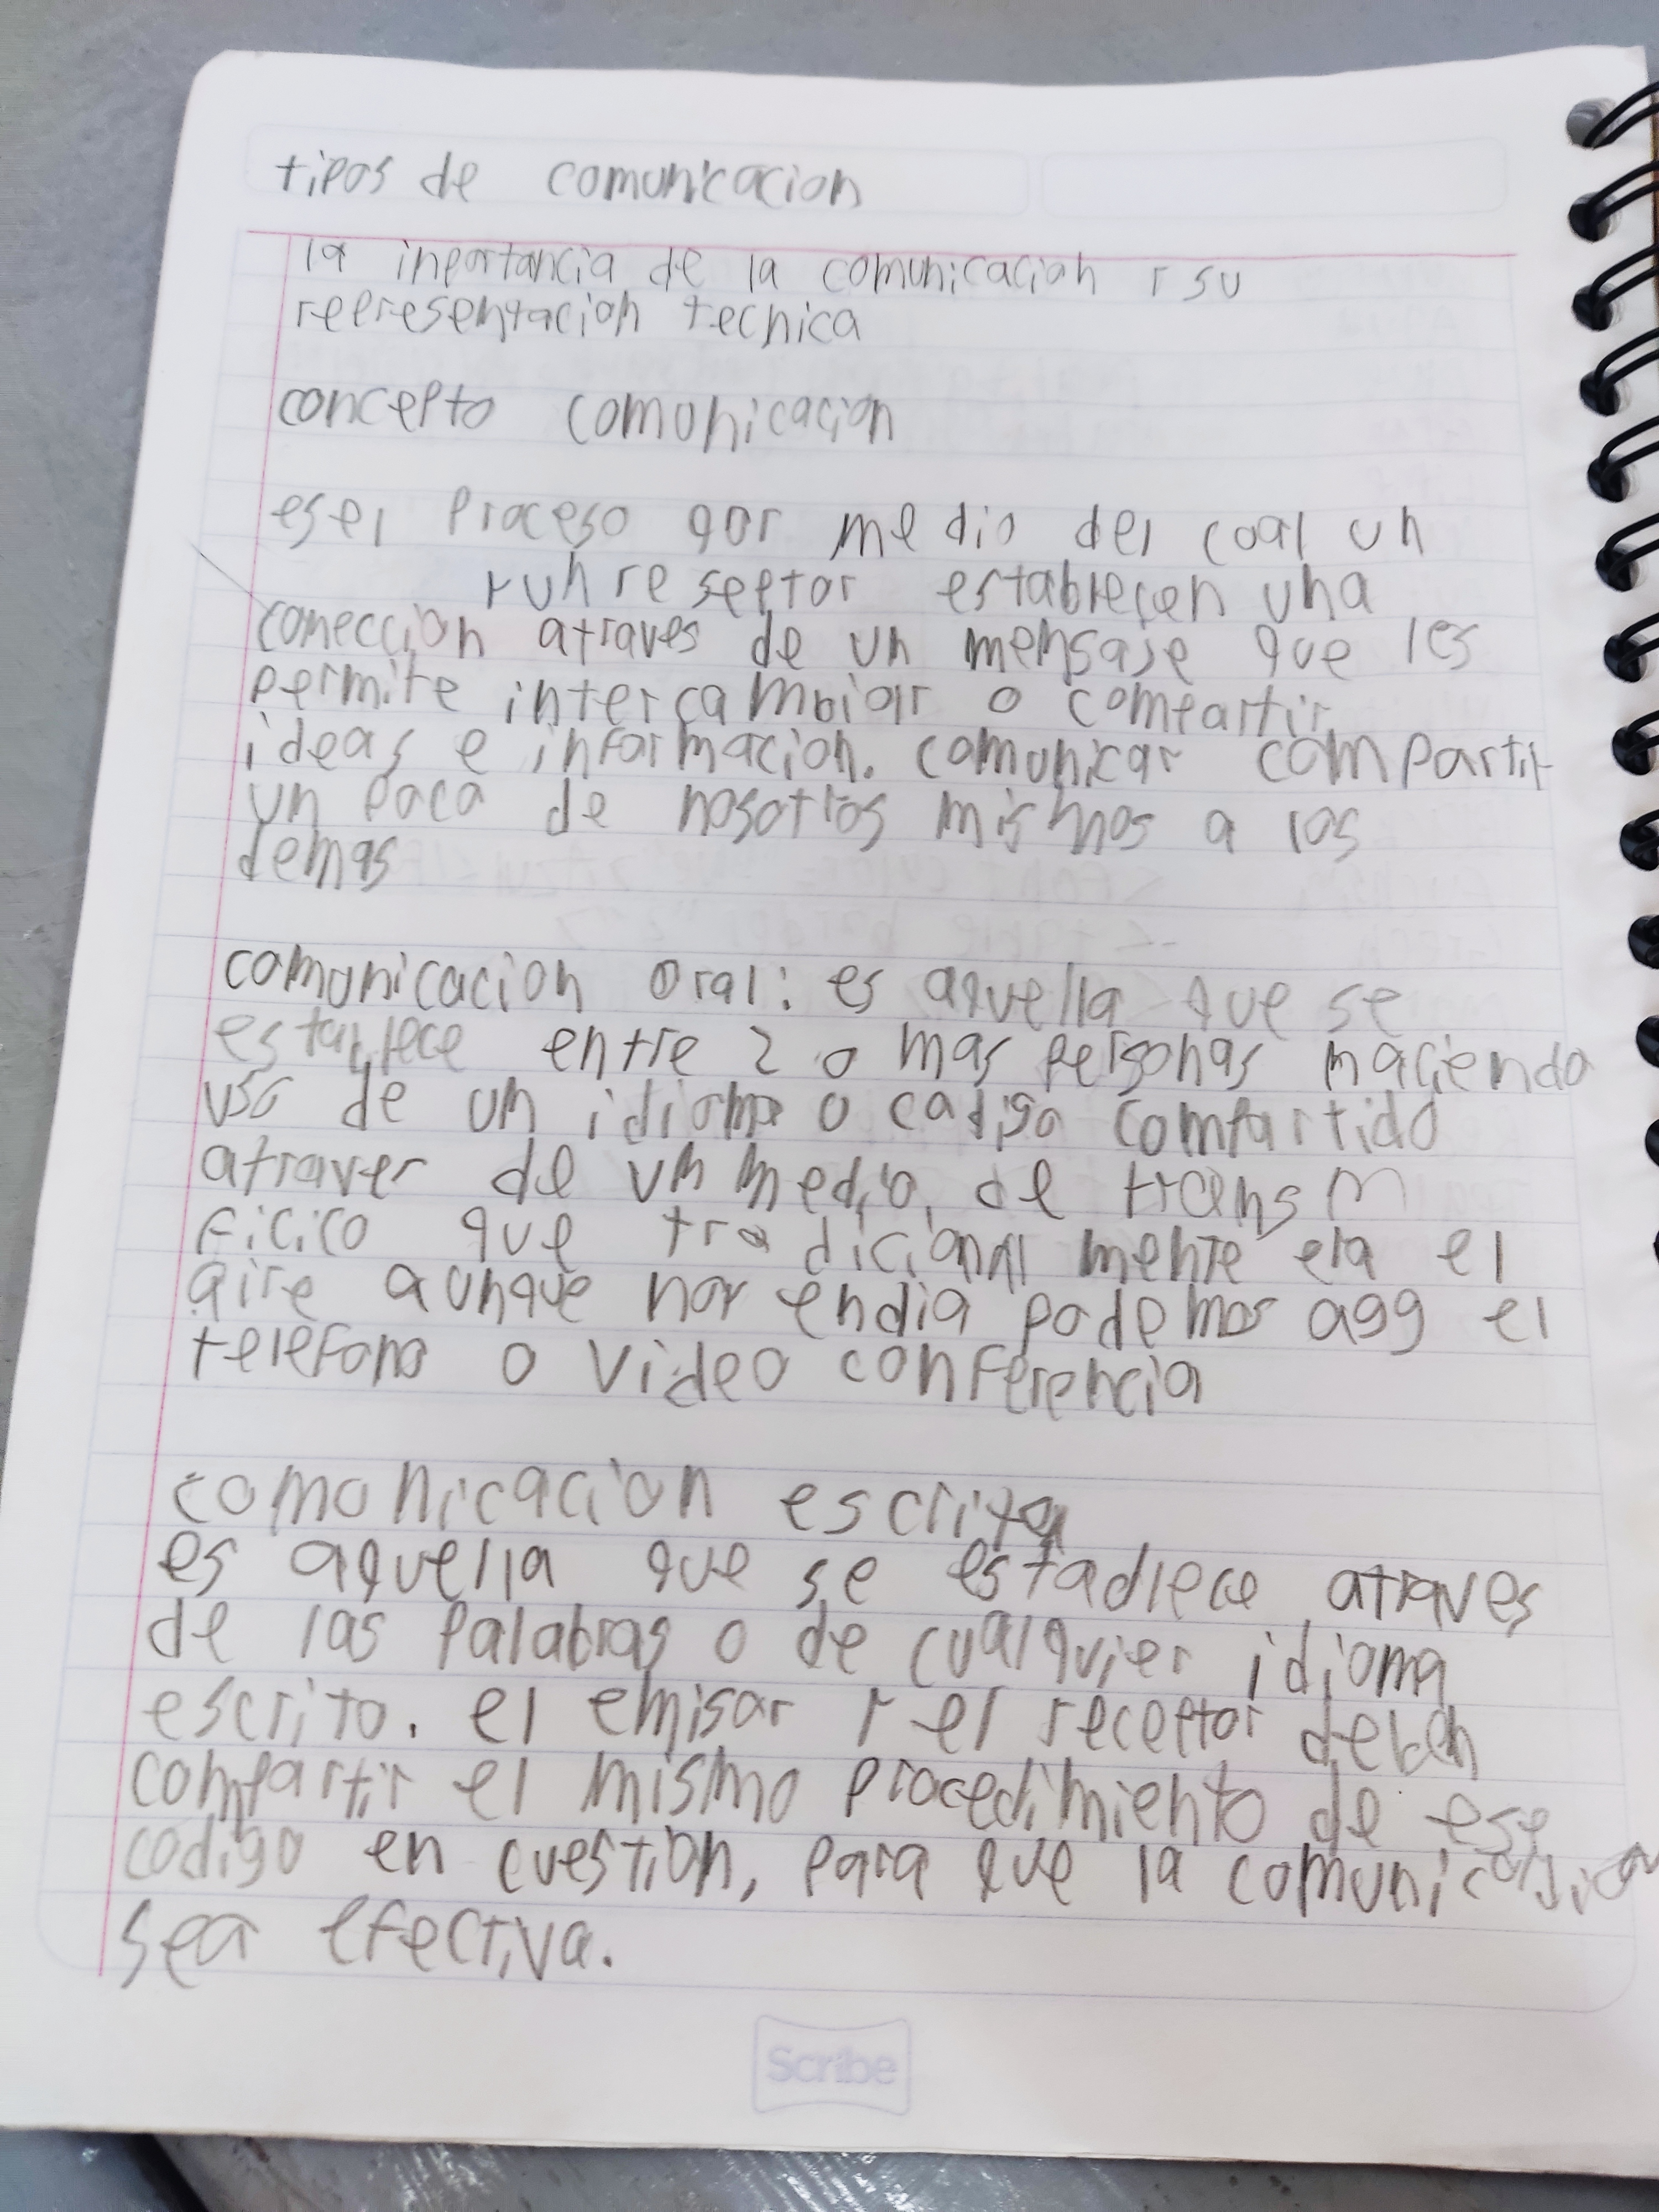 tipos de comunicacion
la inportancia de la comunicacion y su
representacion tecnica
concepto comunicacion
es el proceso por medio del coal un
y un reseptor establecen una
comeccion atraves de un mensaje que les
permite intercambiar o compartir
ideas e informacion. comunicar compartir
un poco de nosotros mismos a los
demas
comunicacion oral: es aquella que se
establece entre 2 o mas personas haciendo
uso de un idioma o codigo compartido
atraver de un medio de transm
ficico que tradicional mente era el
aire aunque hoy endia podemos agg el
telefono o video conferencia
comonicacion escrita
es aquella que se estadlece atraves
de las palabras o de cualquier idioma
escrito. el emisor y el receptor deben
compartir el mismo procedimiento de ese
codigo en cuestion, para que la
sea efectiva.
Scribe